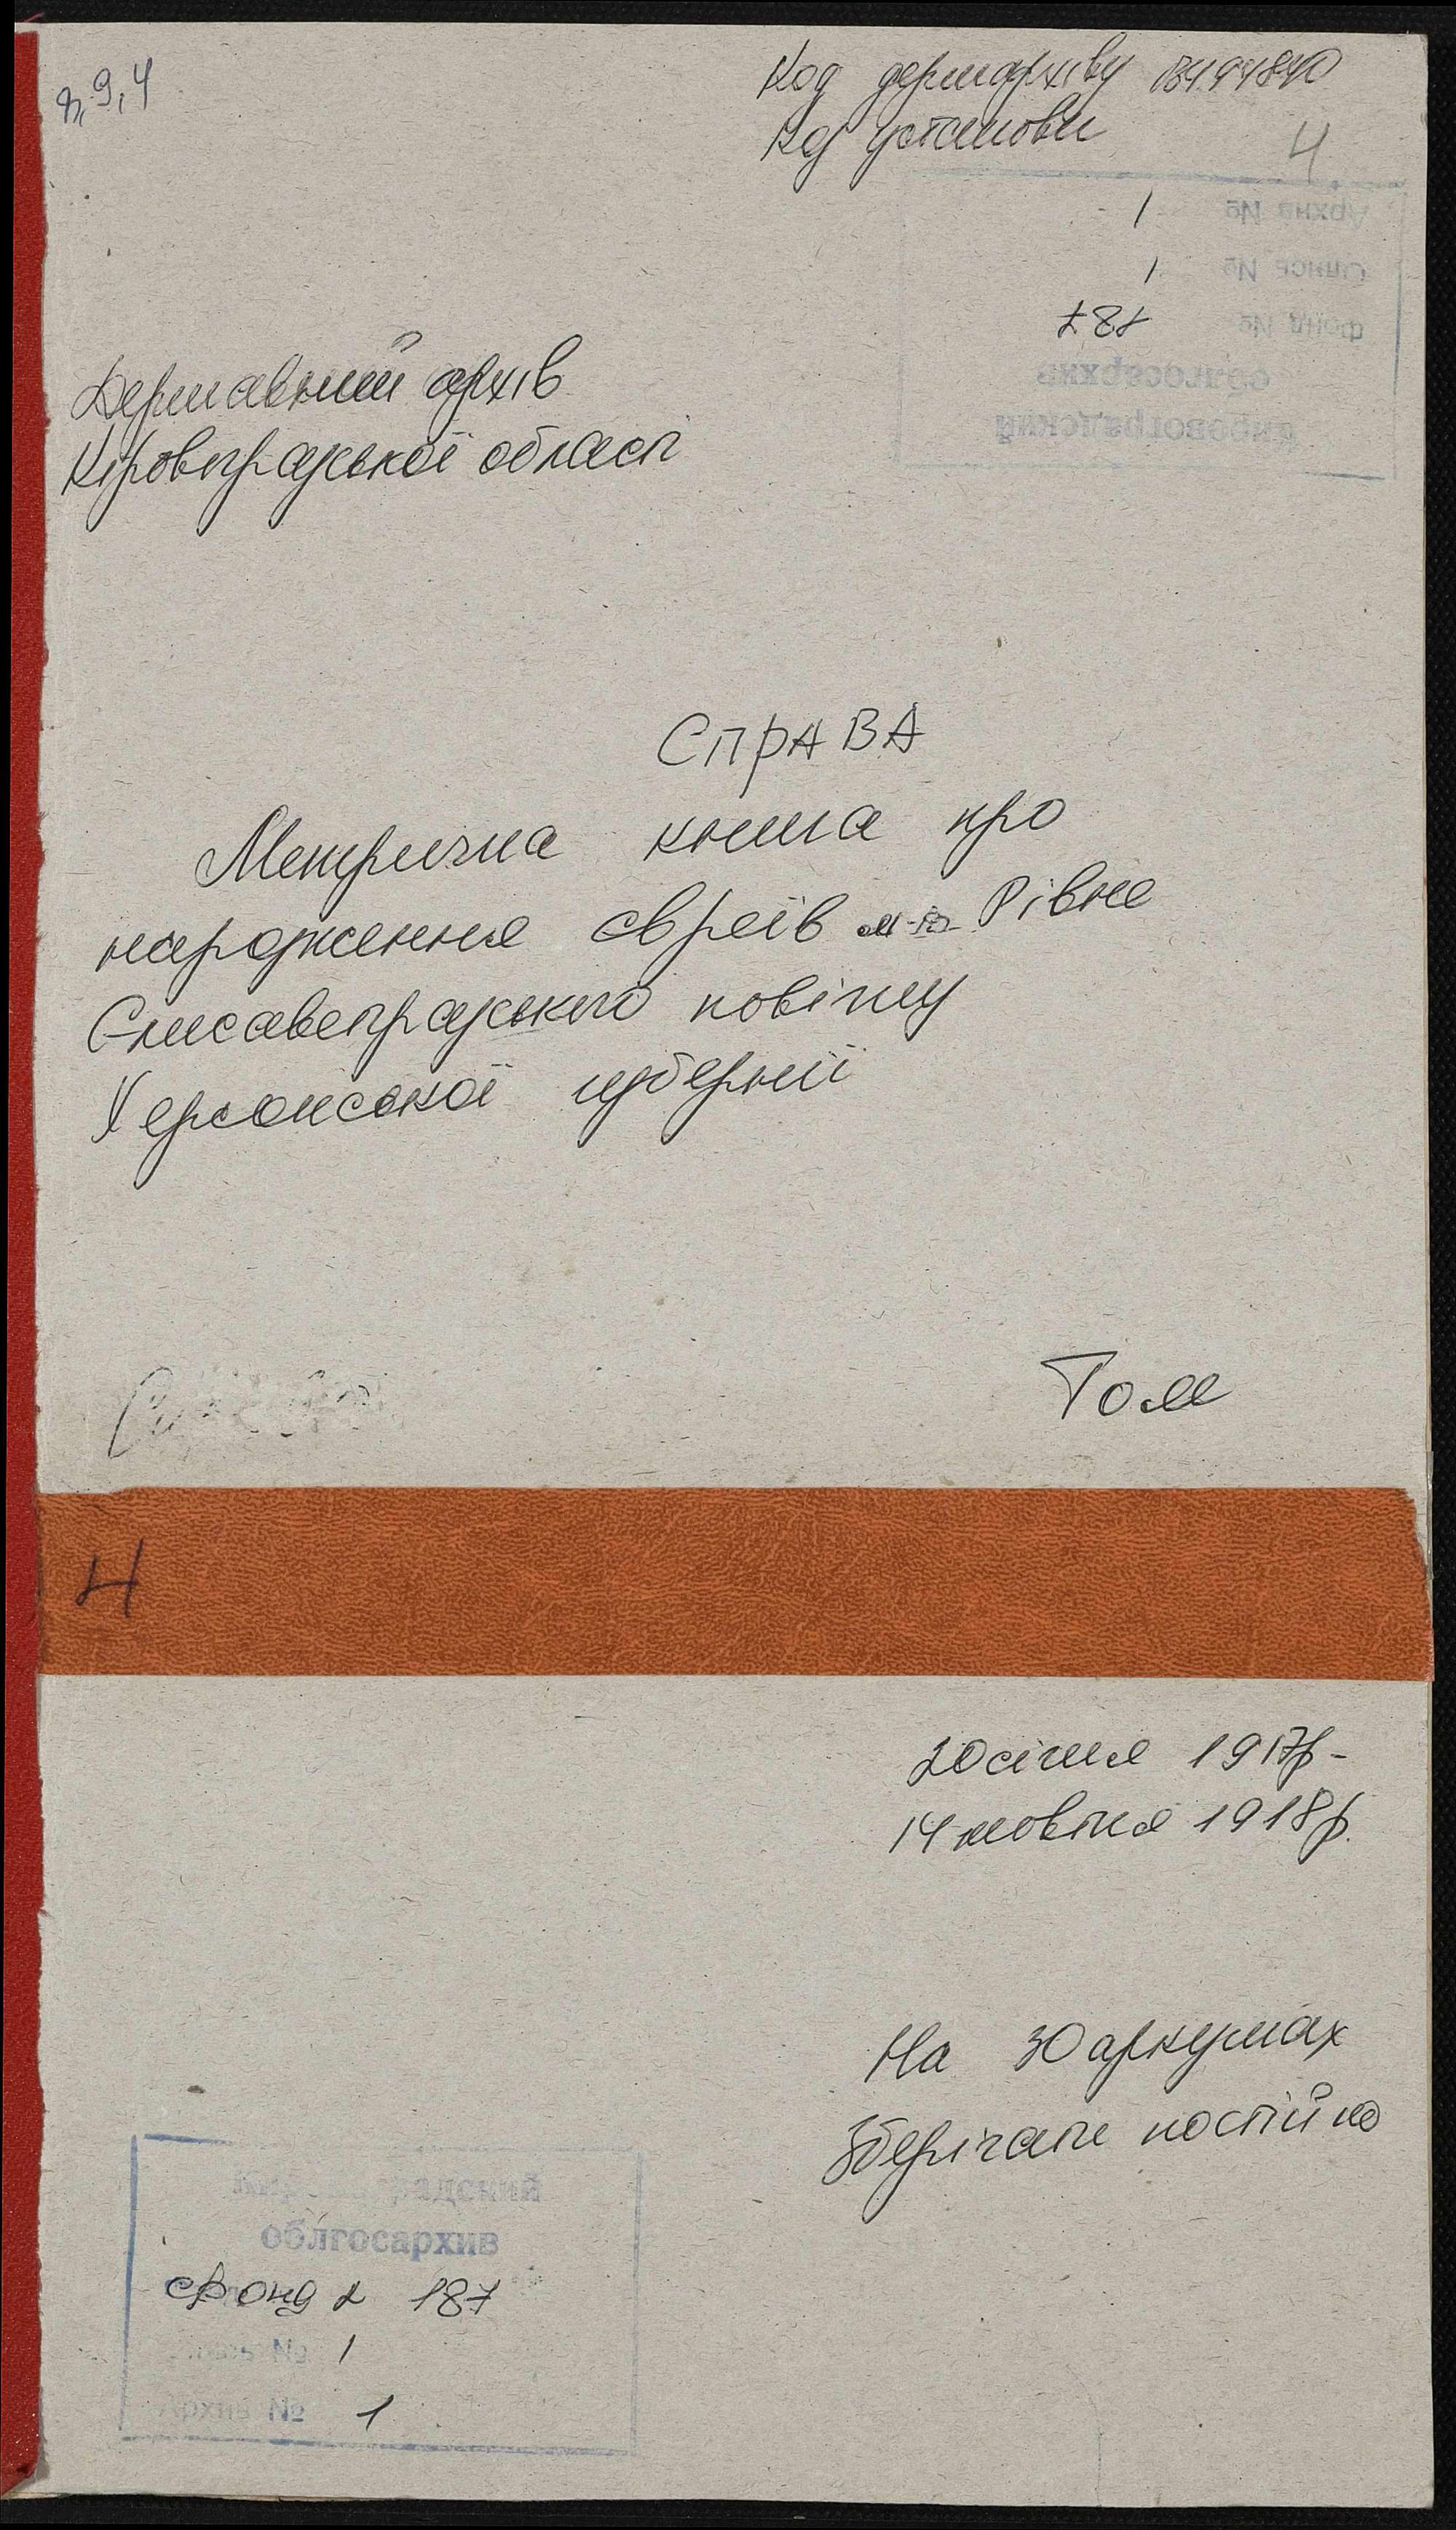 8, 9, 4
Код держархіву 03494840
Код установи
4
Архив № 1
Опись № 1
Фонд № 187
облгосархив
Кировоградский
Державний архів
Кіровоградської області
СПРАВА
Метрична книга про
народження євреїв м-ка Рівне
Єлисаветградського повіту
Херсонської губернії
Том
4
20 січня 1917р -
14 жовтня 1918р.
На 30 аркушах
Зберігати постійно
Кировоградский
облгосархив
Фонд 187
Опись № 1
Архив № 1